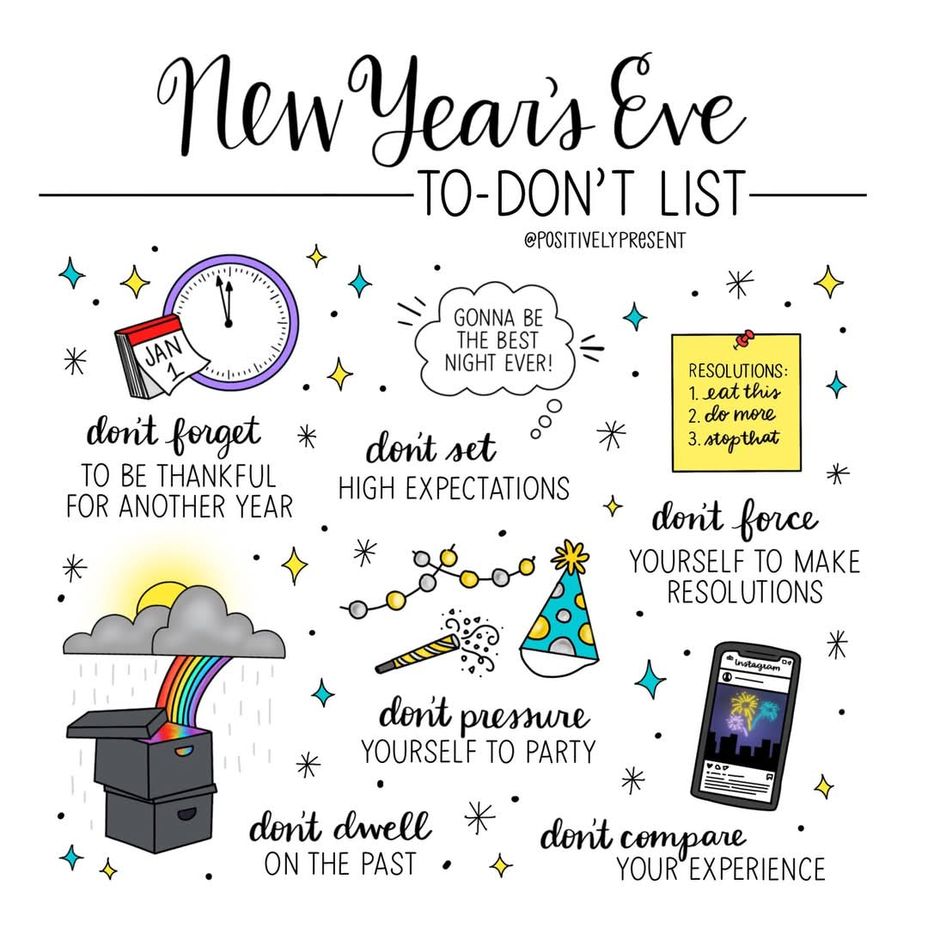 New Year's Eve
TO-DON'T LIST
@POSITIVELYPRESENT
JAN
1
don't forget
TO BE THANKFUL
FOR ANOTHER YEAR
GONNA BE
THE BEST
NIGHT EVER!
don't set
HIGH EXPECTATIONS
RESOLUTIONS:
1. eat this
2. do more
3. stop that
don't force
YOURSELF TO MAKE
RESOLUTIONS
don't pressure
YOURSELF TO PARTY
Instagram
don't dwell
ON THE PAST
don't compare
YOUR EXPERIENCE